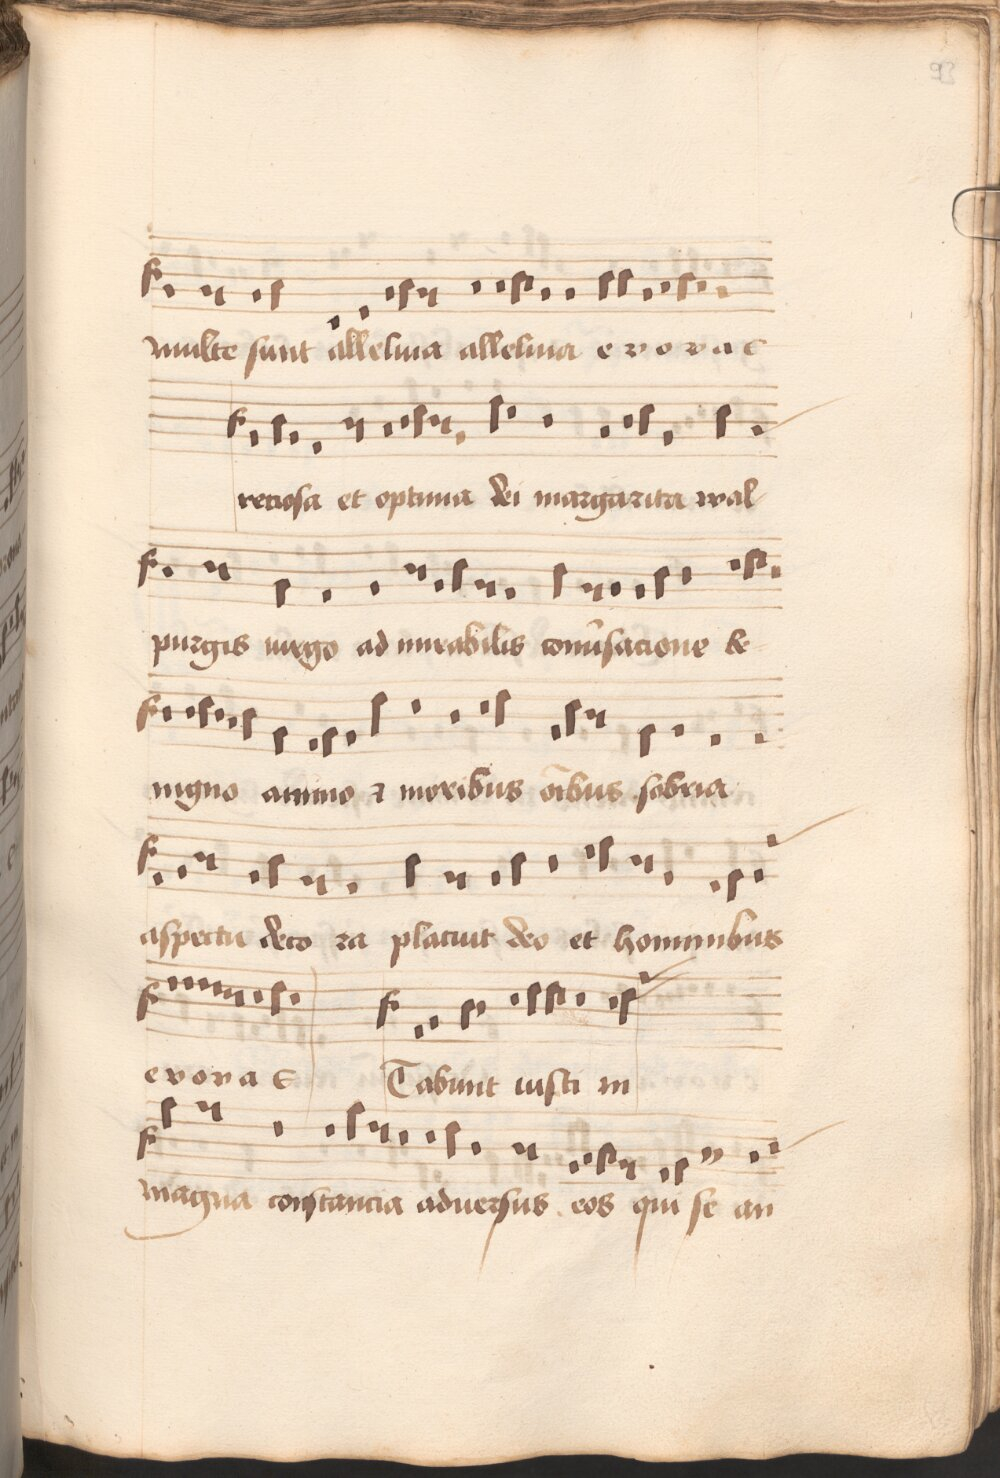 93
multe sunt alleluia alleluia e v o v a e
reciosa et optima dei margarita wal
purgis virgo ad mirabilis conûsacione be
nigno animo ⁊ moribus oībus sobria
aspectu deco ra placuit deo et hominibus
e v o v a e Tabunt iusti in
magna constancia adversus eos qui se an